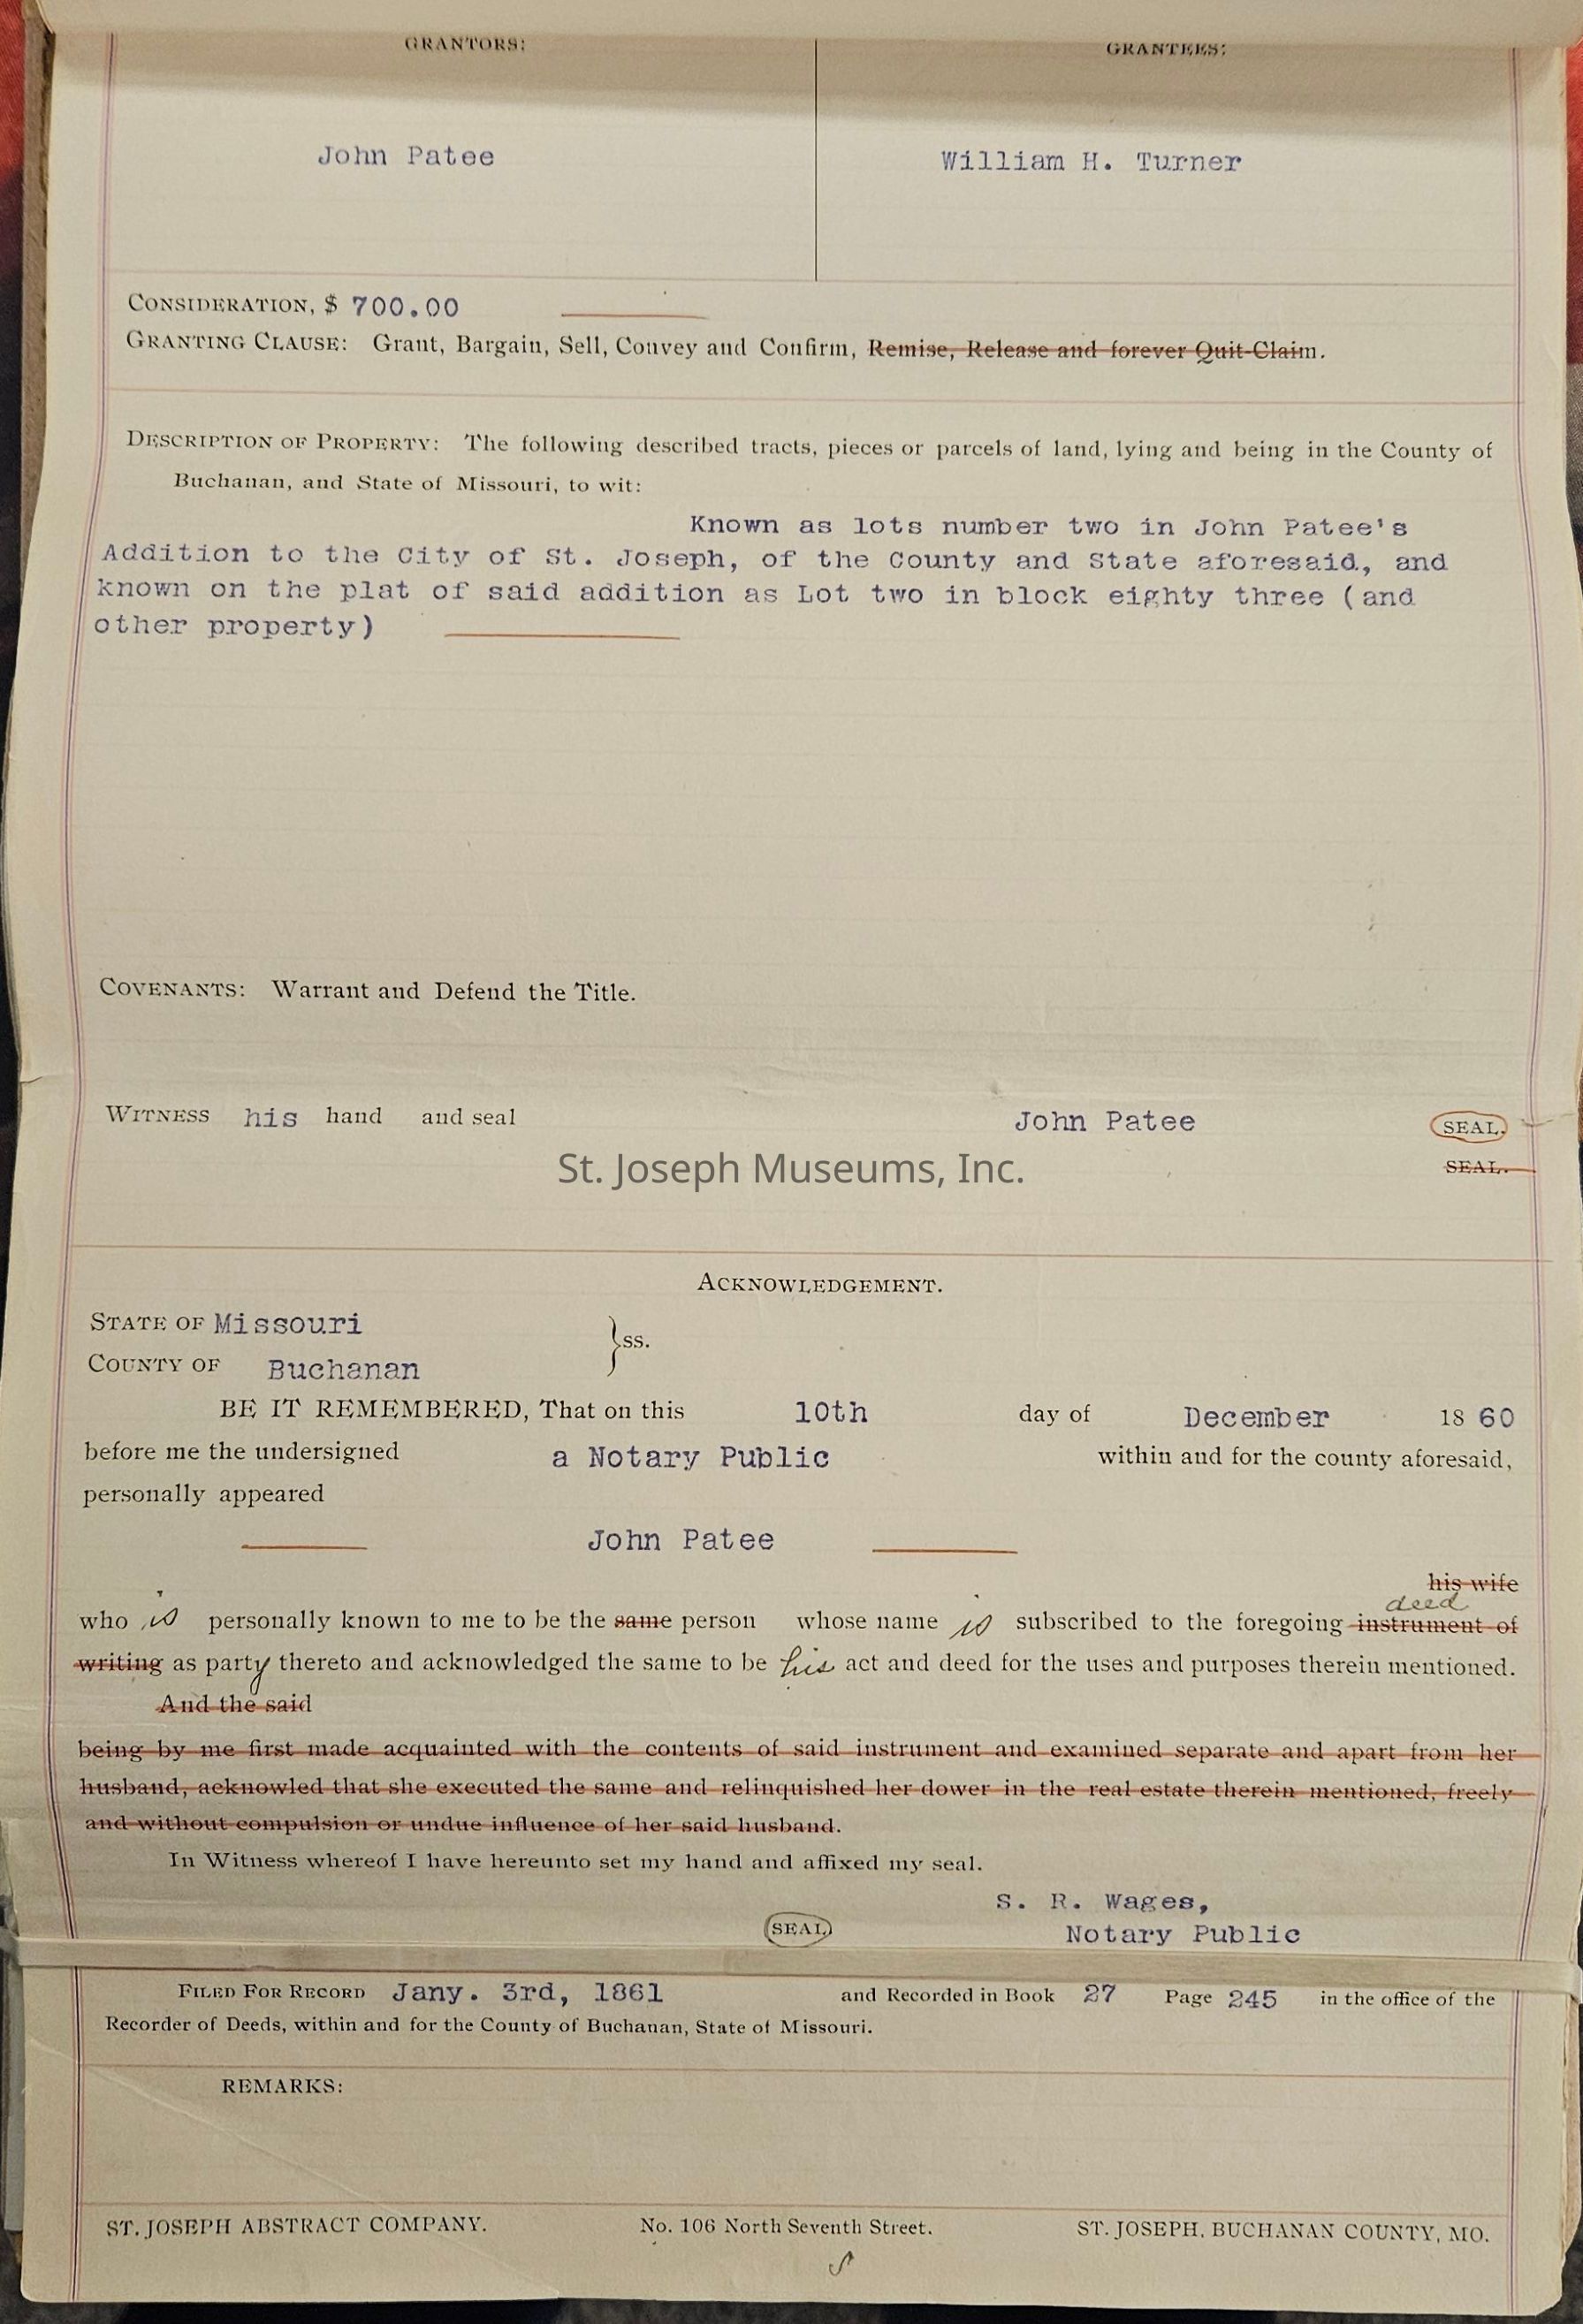 GRANTORS: GRANTEES:
John Patee William H. Turner
CONSIDERATION, $ 700.00
GRANTING CLAUSE: Grant, Bargain, Sell, Convey and Confirm, Remise, Release and forever Quit-Claim.
DESCRIPTION OF PROPERTY: The following described tracts, pieces or parcels of land, lying and being in the County of
Buchanan, and State of Missouri, to wit:
Known as lots number two in John Patee's
Addition to the City of St. Joseph, of the County and State aforesaid, and
known on the plat of said addition as Lot two in block eighty three (and
other property)
COVENANTS: Warrant and Defend the Title.
WITNESS his hand and seal John Patee SEAL.
SEAL.
St. Joseph Museums, Inc.
ACKNOWLEDGEMENT.
STATE OF Missouri
COUNTY OF Buchanan } ss.
BE IT REMEMBERED, That on this 10th day of December 18 60
before me the undersigned a Notary Public within and for the county aforesaid,
personally appeared
John Patee
his wife
deed
who is personally known to me to be the same person whose name is subscribed to the foregoing instrument of
writing as party thereto and acknowledged the same to be his act and deed for the uses and purposes therein mentioned.
And the said
being by me first made acquainted with the contents of said instrument and examined separate and apart from her
husband, acknowled that she executed the same and relinquished her dower in the real estate therein mentioned, freely
and without compulsion or undue influence of her said husband.
In Witness whereof I have hereunto set my hand and affixed my seal.
S. R. Wages,
SEAL Notary Public
FILED FOR RECORD Jany. 3rd, 1861 and Recorded in Book 27 Page 245 in the office of the
Recorder of Deeds, within and for the County of Buchanan, State of Missouri.
REMARKS:
ST. JOSEPH ABSTRACT COMPANY. No. 106 North Seventh Street. ST. JOSEPH, BUCHANAN COUNTY, MO.